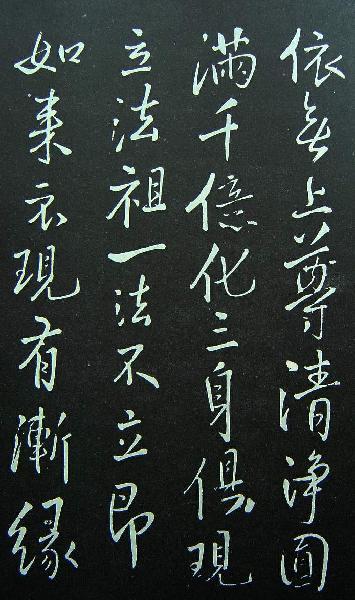 依無上尊清淨圓
滿千億化三身俱現
立法祖一法不立即
如來示現有漸緣